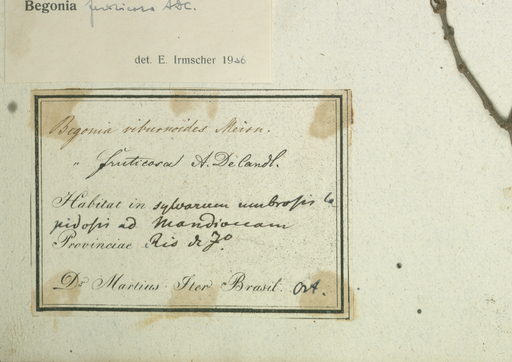 Begonia fruticosa ADC.
det. E. Irmscher 1946
Begonia viburnoides Meissn.
" fruticosa A. De Candl.
Habitat in sylvarum umbrosis la
pidosis ad Mandioccam
Provinciae Rio de Jº.
Dr. Martius Iter Brasil. Oct.